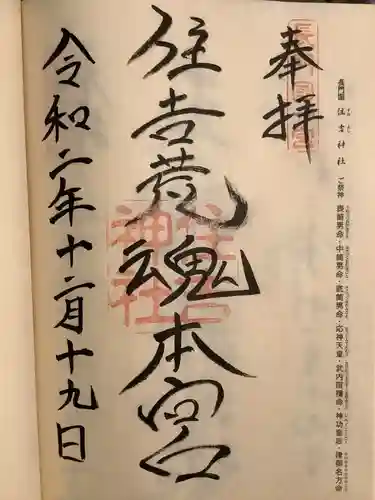 長門国 住吉神社 ご祭神 表筒男命・中筒男命・底筒男命・応神天皇・武内宿禰命・神功皇后・建御名方命
奉拝
住吉荒魂本宮
住吉神社
令和二年十二月十九日